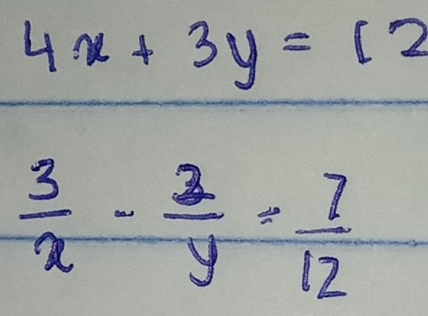 4x + 3y = 12
3/x - 3/y = 7/12